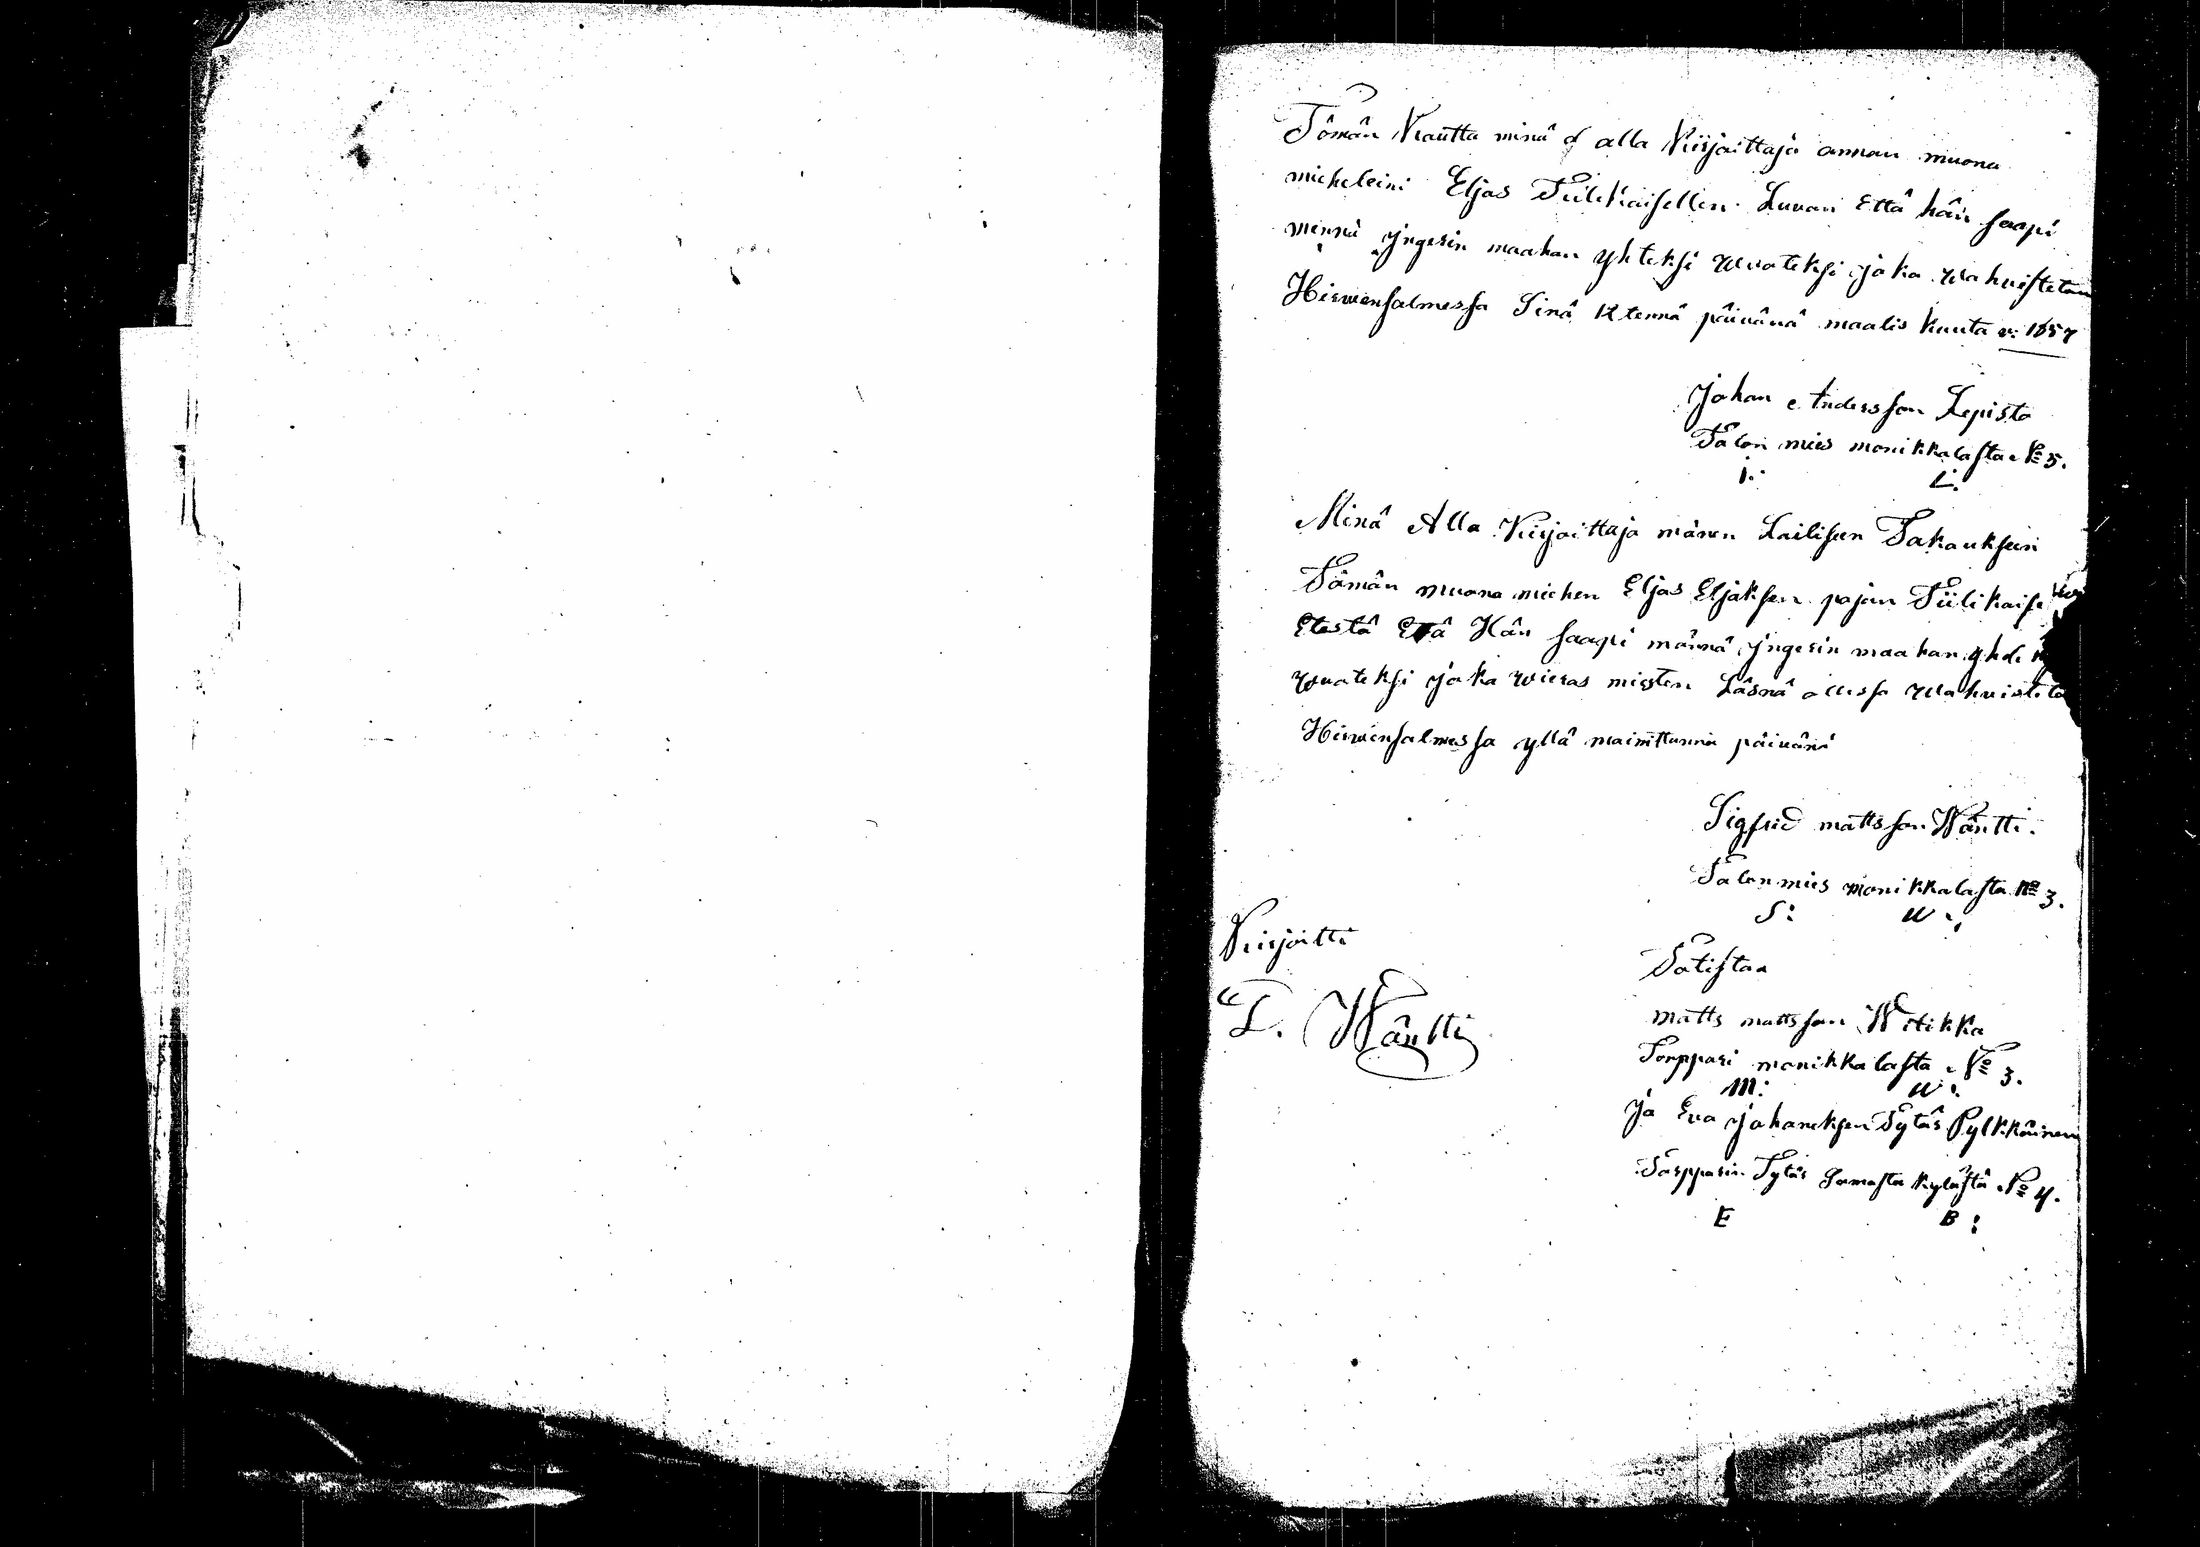 Tämän Kautta minä alla Kirjoittaja annan muona
miehelleini Eljas Tiilikaisellen Luvan Että hän saapi
mennä yngerin maahan yhteksi wuoteksi joka wahvistetan
Hirwensalmessa Sinä 12 tennä päivänä maalis kuuta v: 1857
Johan Andersson Lepistö
Talon mies monikkalasta No 5.
J: L:
Minä Alla Kirjoittaja mänen Lailisen Takauksen
Tämän muona miehen Eljas Eljaksen pojan Tiilikaise
Etestä Että Hän saapi männä yngerin maahan yhde
wuoteksi joka wieras miesten Läsnä ollessa wahvisteta
Hirwensalmessa yllä mainittunna päivänä
Sigfrid mattsson Wäntti.
Talon mies monikkalasta No 3.
S: W:
Kirjoitti
Totistaa
L. Wäntti
matts mattsson Witikka
Torppari monikkalasta No 3.
M: W:
ja Eva johaneksen Tytär Pylkkäinen
Torpparin Tytär kylästä No 4.
E B: